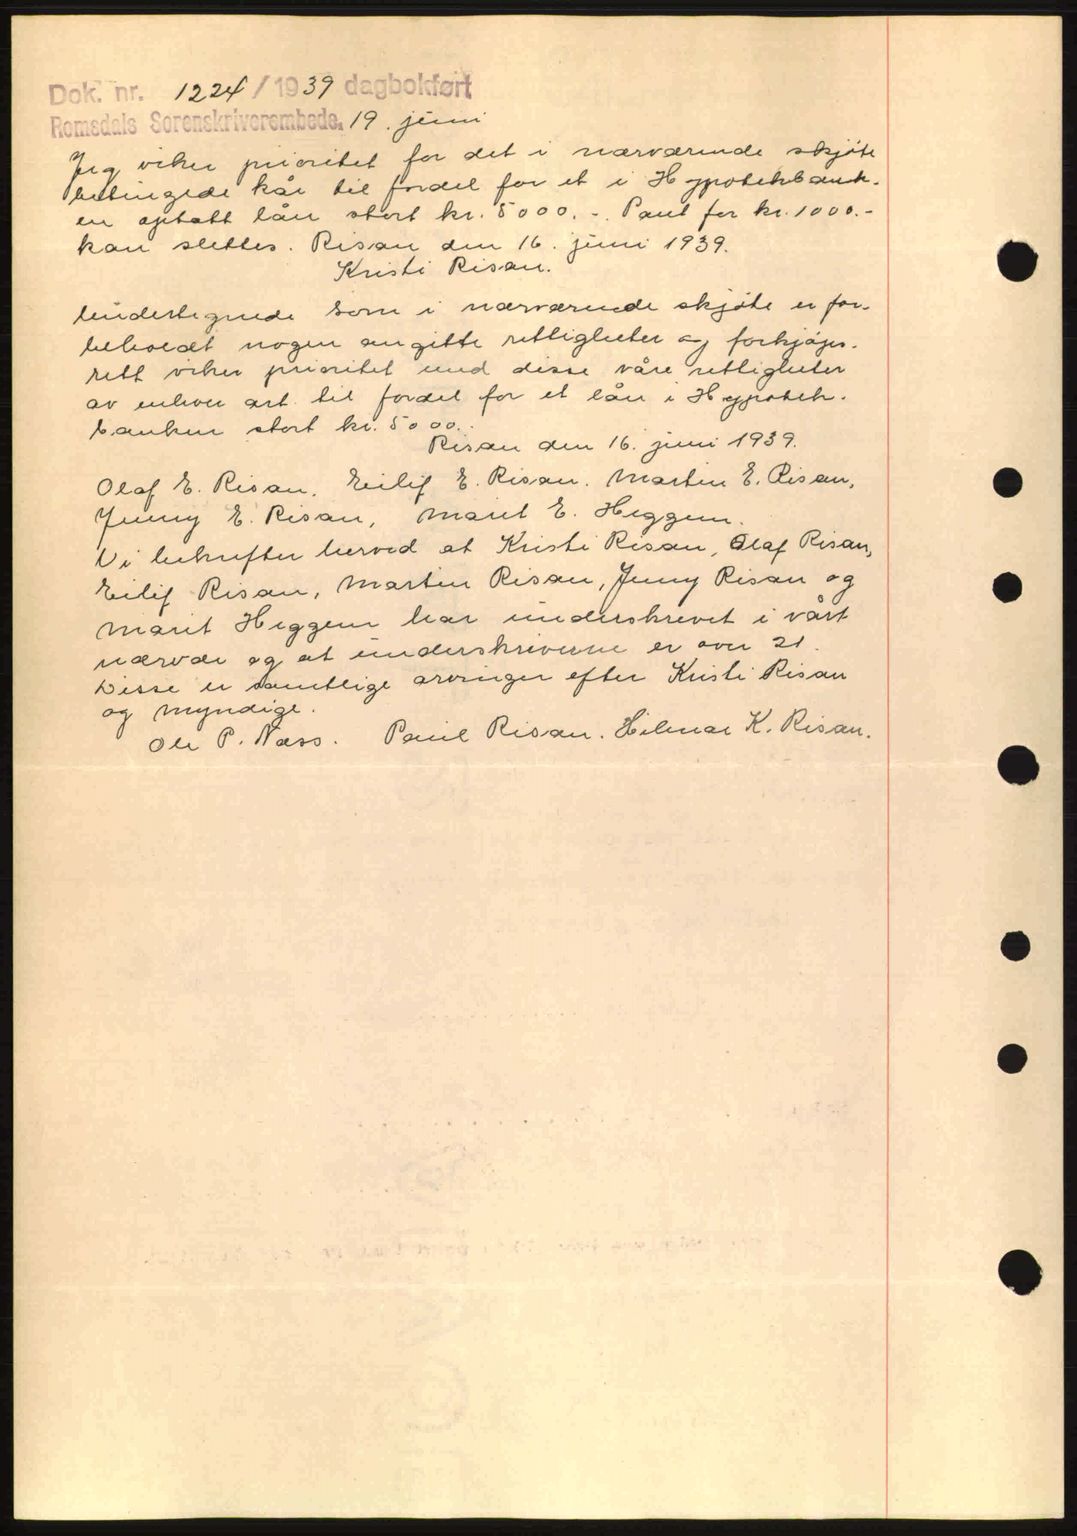 Dok. nr. 1224 / 1939 dagbokført
Romsdals Sorenskriverembede, 19. juni
Jeg viker prioritet for det i nærværende skjøte
betingede kår til fordel for et i Hypotekbank-
en optatt lån stort kr. 5000.-. Pant for kr. 1000.-
kan slettes. Risan den 16. juni 1939.
Kristi Risan.
Undertegnede som i nærværende skjøte er for-
beholdt nogen angitte rettigheter og forkjøps-
rett viker prioritet med disse våre rettigheter
av enhver art til fordel for et lån i Hypotek-
banken stort kr. 5000.-
Risan den 16. juni 1939.
Olaf E. Risan. Eilif E. Risan. Martin E. Risan,
Jenny E. Risan, Marit E. Heggem.
Vi bekrefter herved at Kristi Risan, Olaf Risan,
Eilif Risan, Martin Risan, Jenny Risan og
Marit Heggem har underskrevet i vårt
nærvær og at underskriverne er over 21.
Disse er samtlige arvinger efter Kristi Risan
og myndige.
Ole P. Næss. Paul Risan. Hilmar K. Risan.